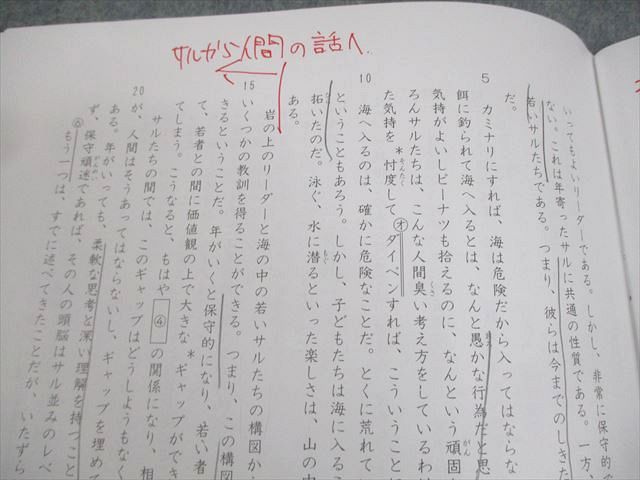 サルから人間の話へ
いってもよいリーダーである。しかし、非常に保守的で
ない。これは年寄ったサルに共通の性質である。一方、
若いサルたちである。つまり、彼らは今までのしきた
だ。
5 カミナリにすれば、海は危険だから入ってはならな
餌に釣られて海へ入るとは、なんと愚かな行為だと思
気持がよいしピーナツも拾えるのに、なんという頑固
ろんサルたちは、こんな人間臭い考え方をしているわけ
た気持を*忖度してオダイベンすれば、こういうことに
10 海へ入るのは、確かに危険なことだ。とくに荒れてい
ということもあろう。しかし、子どもたちは海に入るこ
拓いたのだ。泳ぐ、水に潜るといった楽しさは、山の中
ある。
岩の上のリーダーと海の中の若いサルたちの構図か
15 いくつかの教訓を得ることができる。つまり、この構図
きるということだ。年がいくと保守的になり、若い者
て、若者との間に価値観の上で大きな*ギャップができ
てしまう。こうなると、もはや④の関係になり、相
サルたちの間では、このギャップはどうしようもなく
20 が、人間はそうあってはならないし、ギャップを埋めて
ある。年がいっても、柔軟な思考と深い理解を持つこと
ず、保守頑迷であれば、その人の頭脳はサル並みのレベ
もう一つは、すでに述べてきたことだが、いたずら